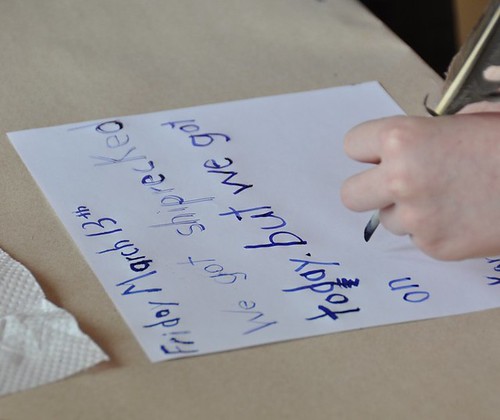 Friday March 13th
We got shiprecked
today. but we got
on